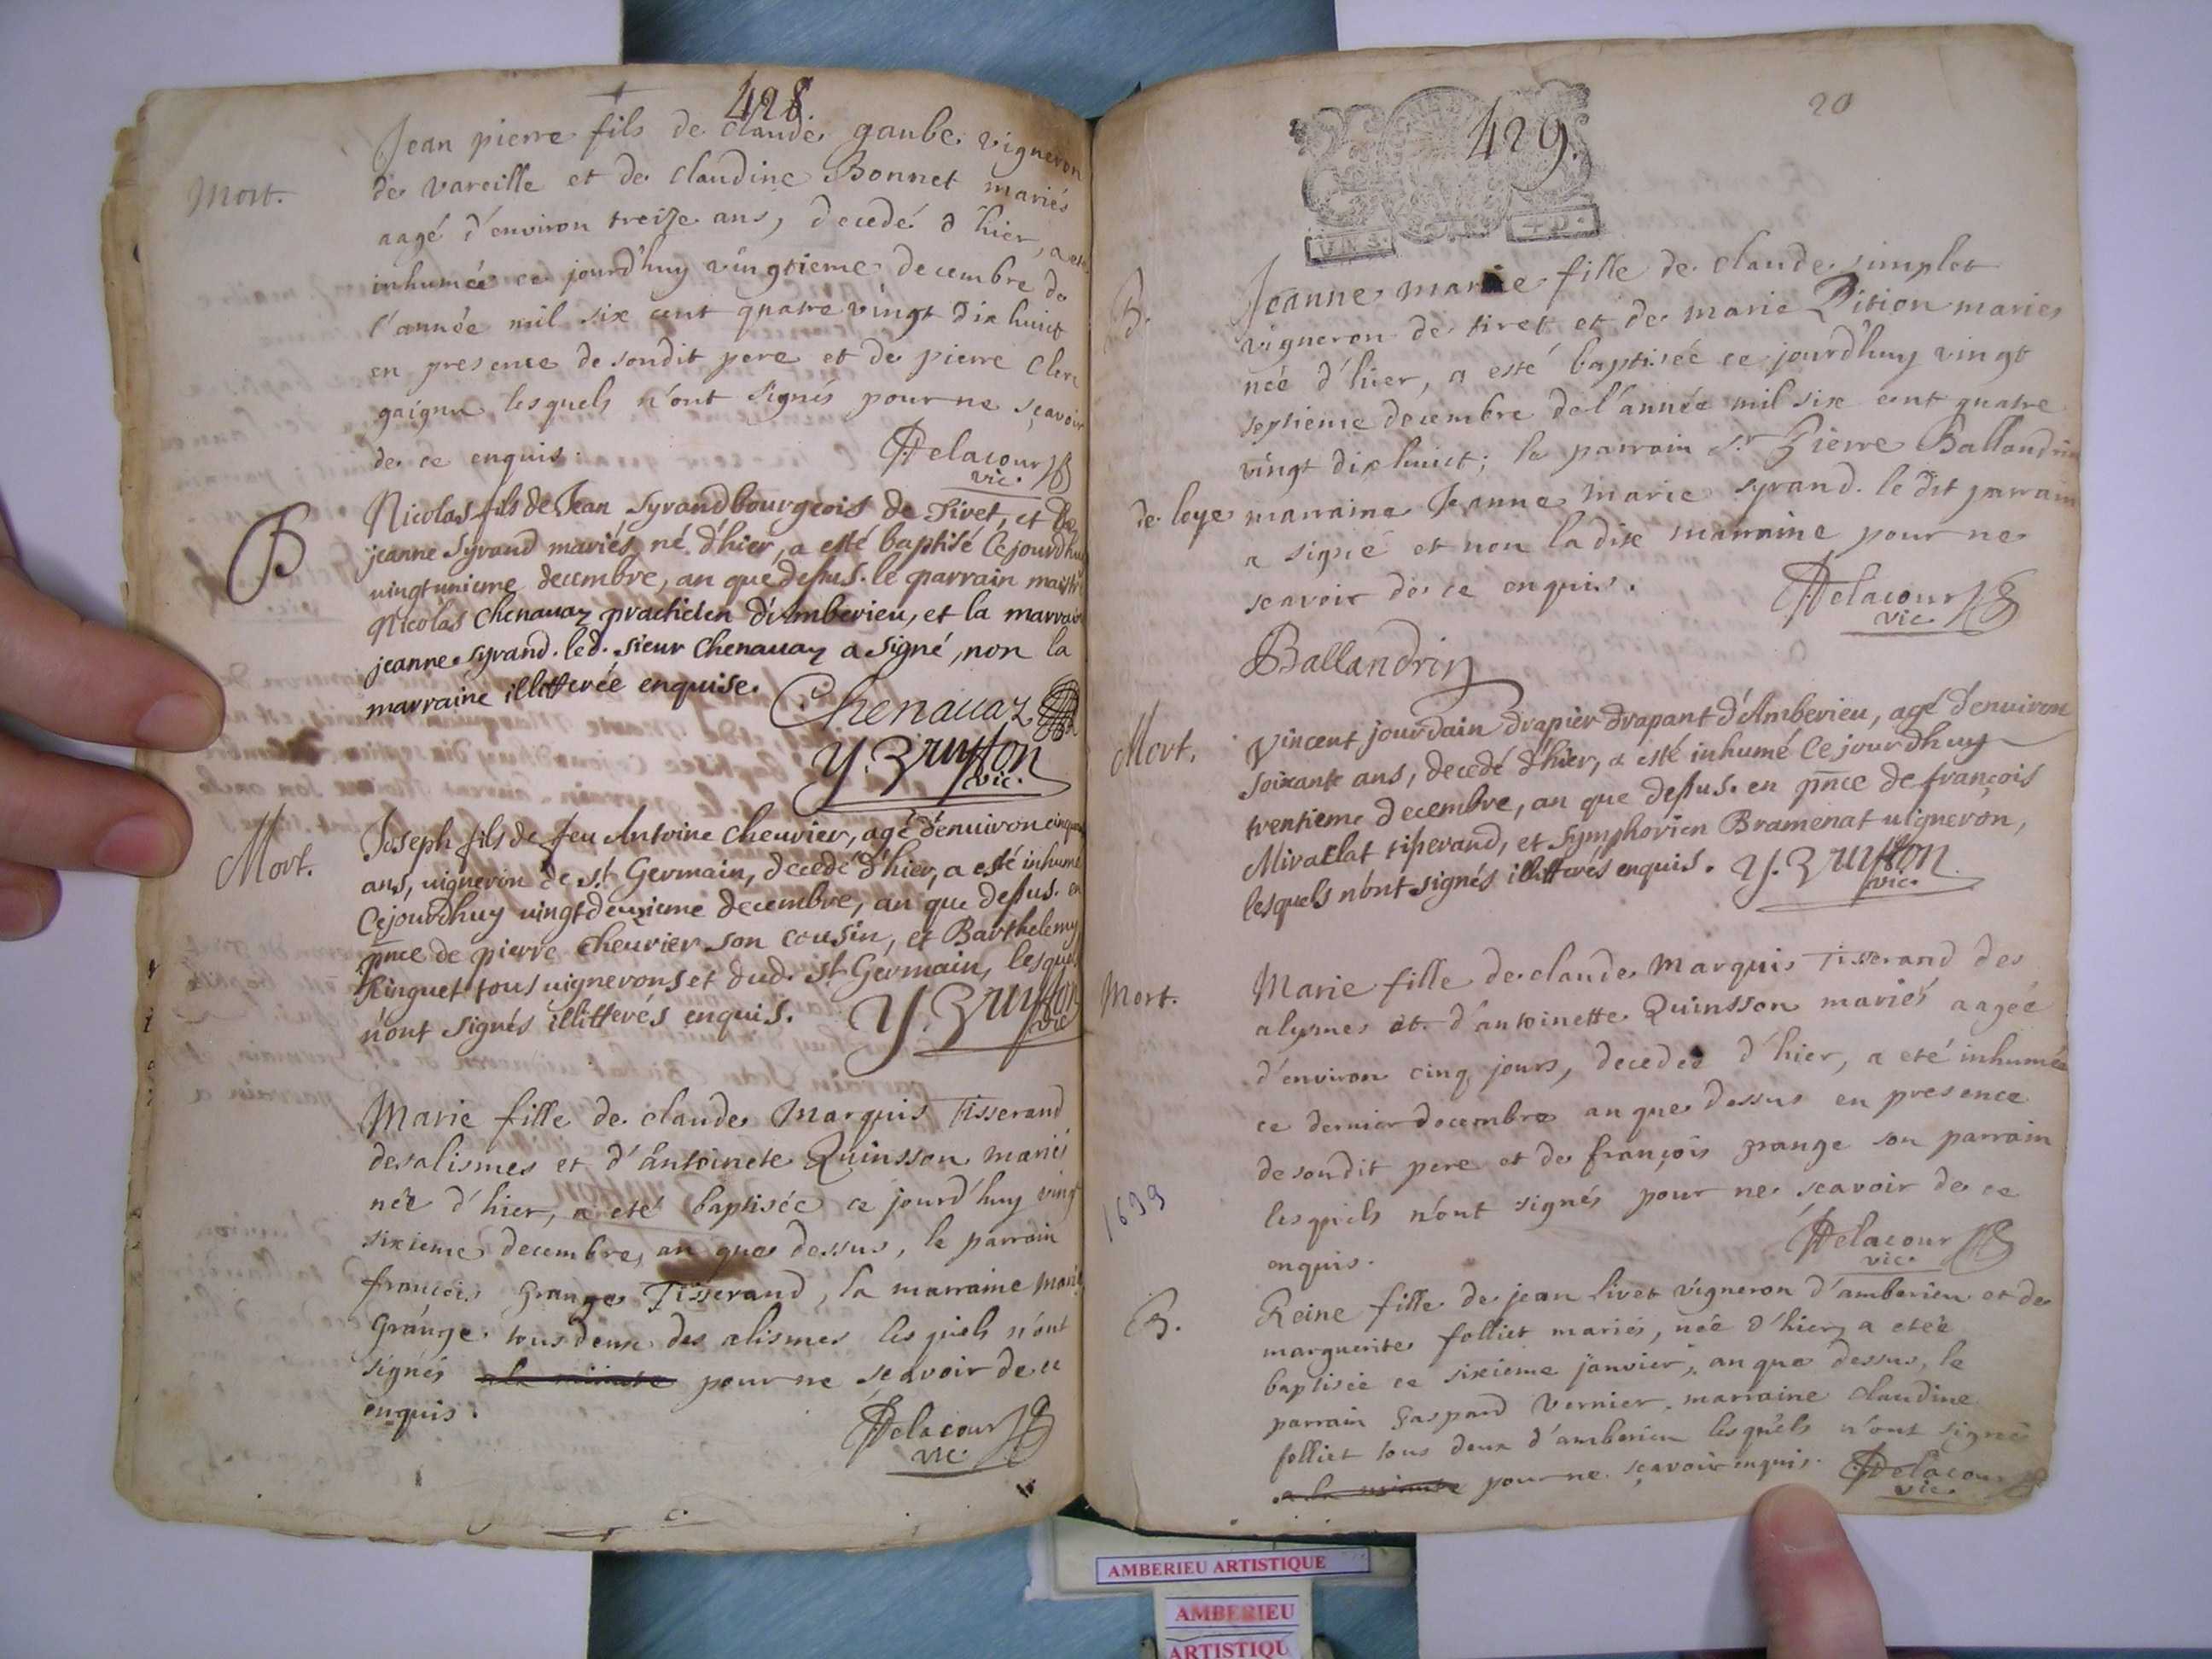 428.
Mort.
Jean pierre fils de claude gaube vigneron
de vareille et de claudine Bonnet mariés
aagé d'environ treize ans, decedé d'hier, a eté
inhumée ce jourd'huy vingtieme decembre de
l'année mil six cent quatre vingt dix huict
en presence de sondit pere et de pierre Clerc
gaigna lesquels n'ont signés pour ne sçavoir
de ce enquis.
Delacour
vic.
B
Nicolas fils de Jean Syrand bourgeois de Tiret, et de
jeanne Syrand mariés, né d'hier, a esté baptisé Cejourdhuy
uingtunieme decembre, an que dessus. le parrain maistre
Nicolas Chenauaz practicien d'Amberieu, et la marraine
jeanne Syrand. led. sieur Chenauaz a signé, non la
marraine illitterée enquise.
Chenauaz
vic.
Mort.
Joseph fils de feu Antoine Cheurier, agé d'enuiron cinquante
ans, uigneron de st. Germain, decedé d'hier, a esté inhumé
Cejourdhuy uingtdeuxieme decembre, an que dessus. en
pnce de pierre Cheurier son cousin, et Barthelemy
tous uignerons et dud. st. Germain, lesquels
n'ont signés illitterés enquis.
vic
Marie fille de claude Marquis Tisserand
des alismes et d'antoinete Quinsson mariés
née d'hier, a eté baptisée ce jourd'huy vingt
sixieme decembre, an que dessus, le parrain
françois Grange Tisserand, la marraine marie
Grange. tous deux des alismes lesquels n'ont
signés a la minute pour ne sçavoir de ce
enquis.
Delacour
vic.
429.
20
B.
Jeanne marie fille de claude simplet
vigneron de tiret et de marie Pition mariés
née d'hier, a esté baptisée ce jourd'huy vingt
septieme decembre de l'année mil six cent quatre
vingt dix huict; le parrain sr. Pierre Ballandrin
de loye marraine Jeanne marie syrand. le dit parrain
a signé et non ladite marraine pour ne
scavoir de ce enquis.
Delacour
vic.
Ballandrin
Mort.
Vincent jourdain drapier drapant d'Amberieu, agé d'enuiron
soixante ans, decedé d'hier, a esté inhumé Cejourdhuy
trentieme decembre, an que dessus. en pnce de françois
Miraclat tisserand, et Symphorien Bramenat uigneron,
lesquels n'ont signés illitterés enquis.
vic.
Mort.
Marie fille de claude Marquis Tisserand des
alysmes et d'antoinette Quinsson mariés aagée
d'environ cinq jours, decedée d'hier, a eté inhumée
ce dernier decembre an que dessus en presence
de sondit pere et de françois grange son parrain
lesquels n'ont signés pour ne sçavoir de ce
enquis.
Delacour
vic.
1699
B.
Reine fille de jean livet vigneron d'amberieu et de
marguerite folliet mariés, née d'hier, a etée
baptisée ce sixieme janvier, an que dessus, le
parrain Gaspard Vernier. marraine claudine
folliet tous deux d'amberieu lesquels n'ont signés
a la minute pour ne sçavoir enquis.
Delacour
vic.
AMBERIEU ARTISTIQUE
AMBERIEU
ARTISTIQU